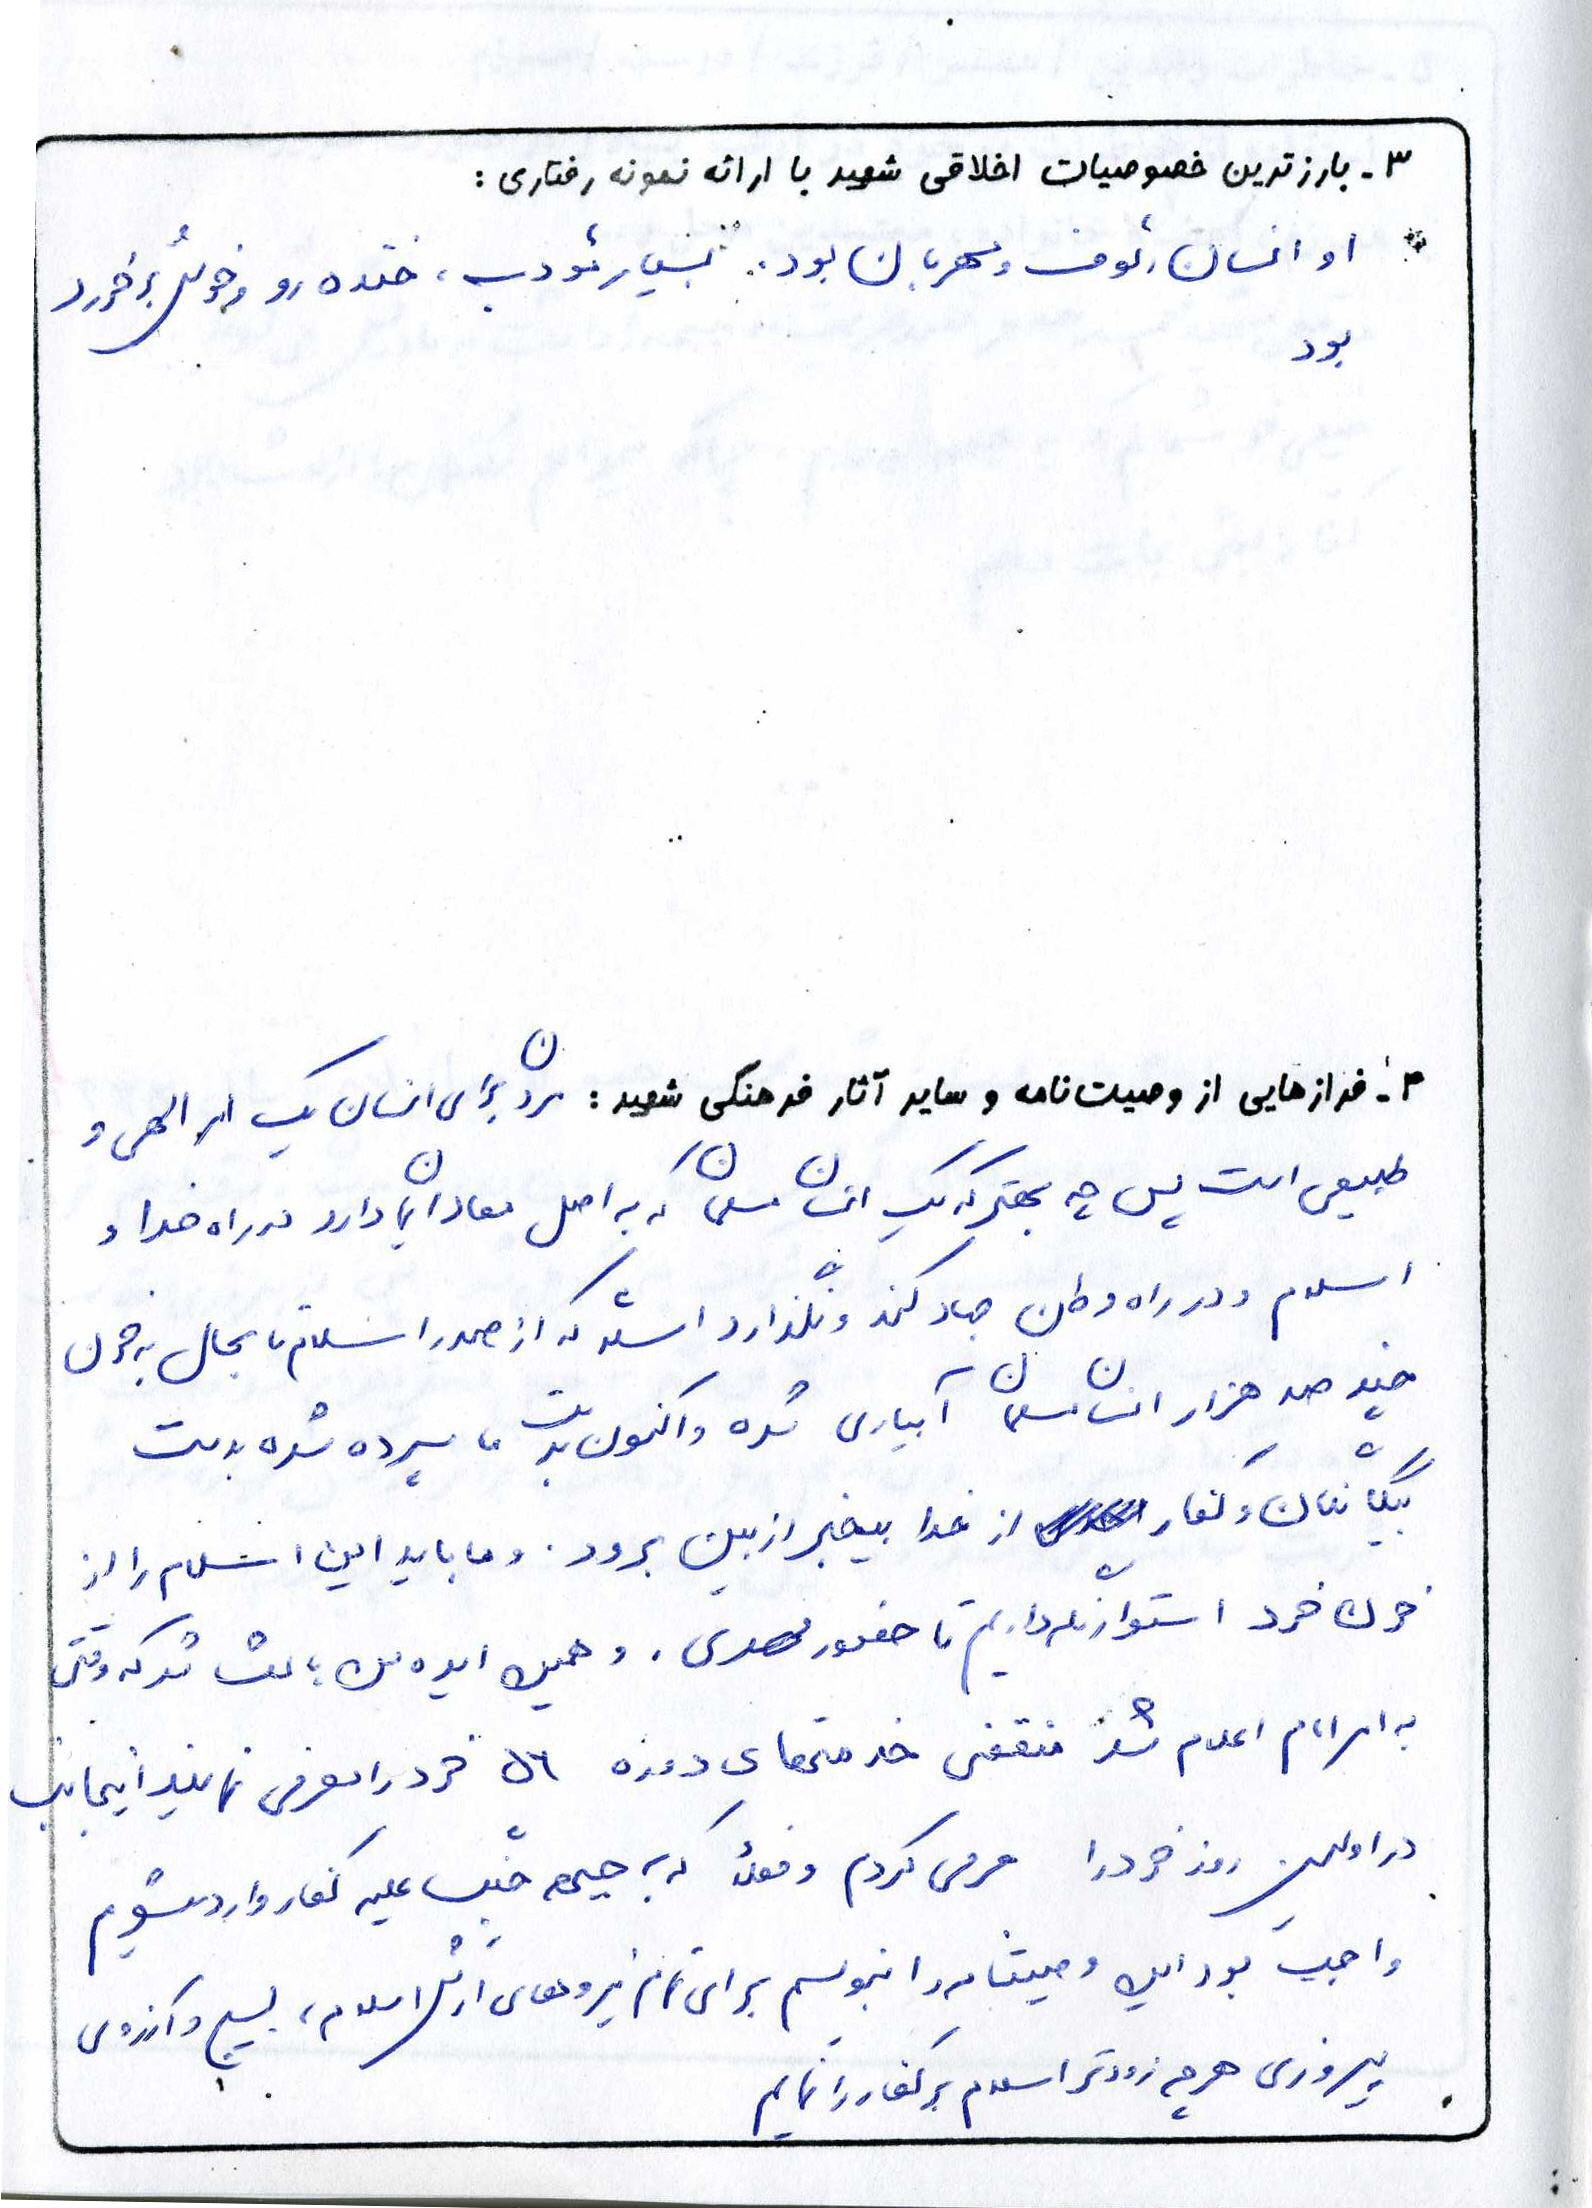 ۳- بارزترین خصوصیات اخلاقی شهید با ارائه نمونه رفتاری:
* او انسان رئوف و مهربان بود. بسیار مئودب، خنده رو و خوش برخورد
بود
۴- فرازهایی از وصیت‌نامه و سایر آثار فرهنگی شهید: مردن برای انسان یک امر الهی و
طبیعی است پس چه بهتر که یک انسان مسلمان که به اصل معاد ایمان دارد در راه خدا و
اسلام و در راه وطن جهاد کند و نگذارد اسلام که از صدر اسلام تا بحال به خون
چند صد هزار انسان مسلمان آبیاری شده و اکنون بدست ما سپرده شده بدست
بیگانگان و کفار از خدا بیخبر از بین برود. و ما باید این اسلام را از
خون خود استوار نگه داریم تا حضور مهدی. و همین ایده من باعث شد که وقتی
به امر امام اعلام شد منقضی خدمتهای دوره ۵۶ خود را معرفی نمایند اینجانب
در اولین روز خود را معرفی کردم و فعلاً که به جبهه جنگ علیه کفار وارد میشویم
واجب بود این وصیتنامه را بنویسم برای تمام نیروهای ارتش اسلام، بسیج و آرزوی
پیروزی هر چه زودتر اسلام بر کفار را نمایم